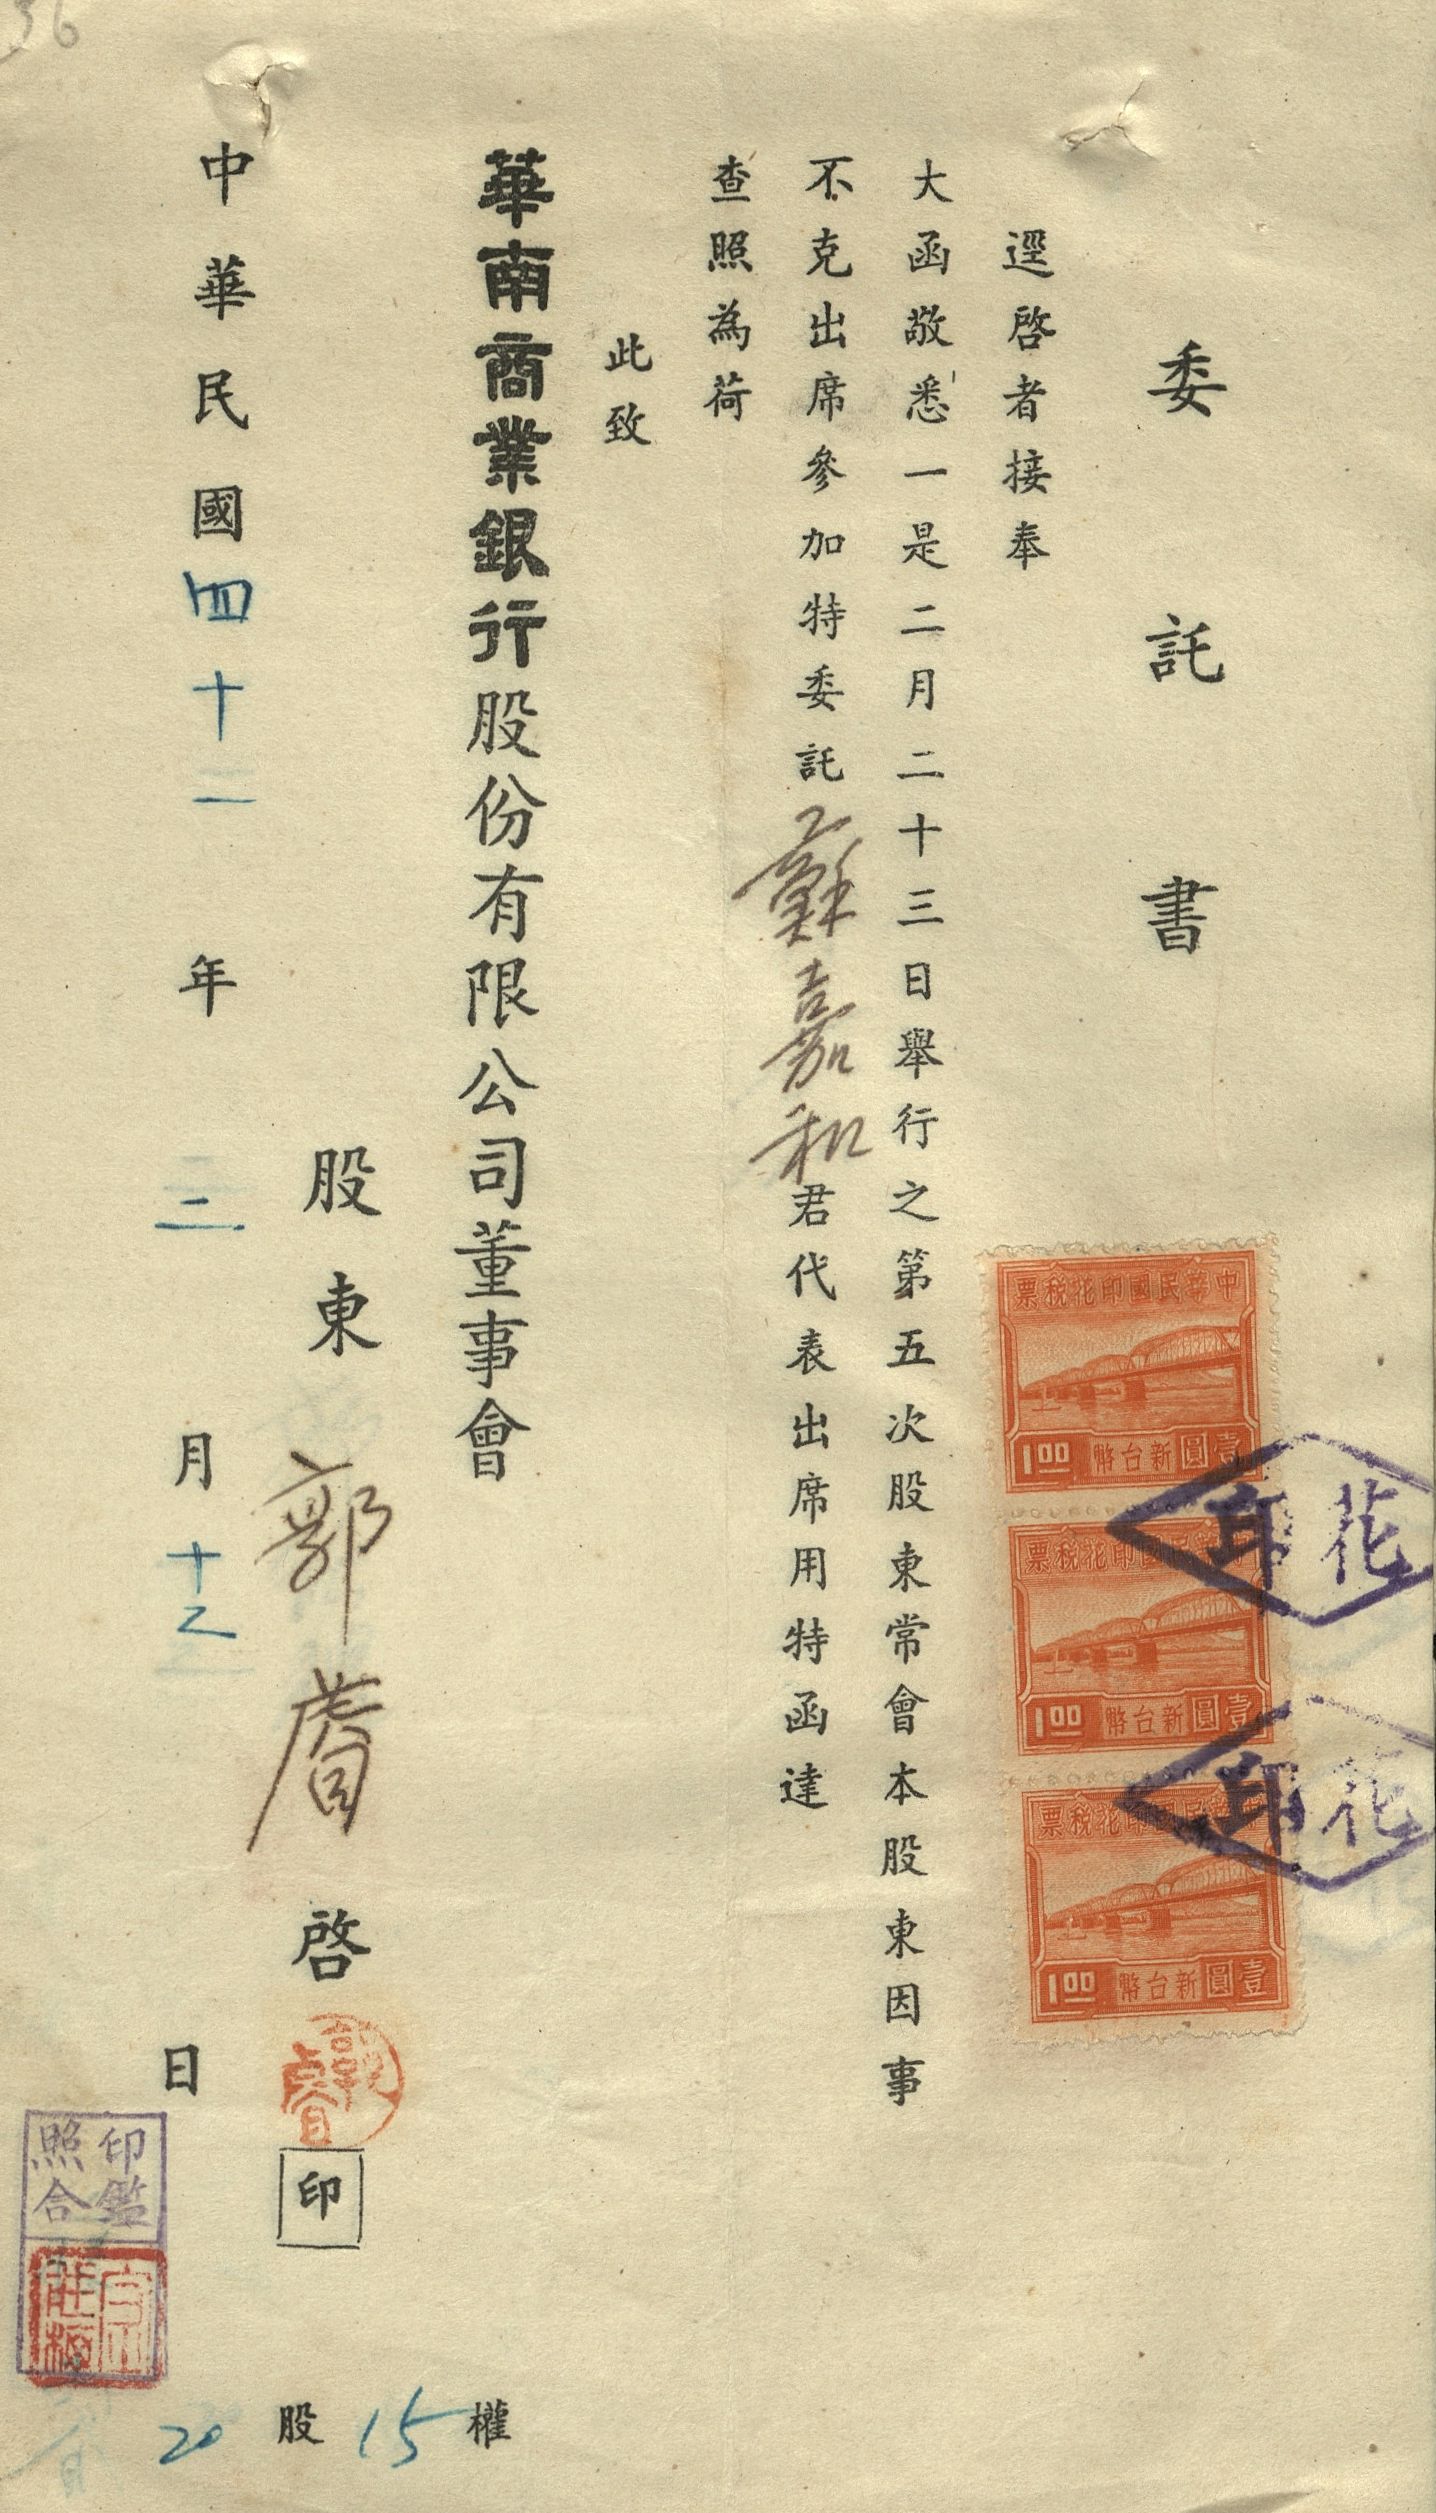 委託書
逕啓者接奉
大函敬悉一是二月二十三日舉行之第五次股東常會本股東因事
不克出席參加特委託蘇嘉和君代表出席用特函達
查照為荷
此致
華南商業銀行股份有限公司董事會
股東郭
啓
印
中華民國四十二年二月十
日
權
15
股
20
中華民國印花稅票
壹圓新台幣
1.00
中華民國印花稅票
壹圓新台幣
1.00
中華民國印花稅票
壹圓新台幣
1.00
花印
花印
印鑑
照合
36